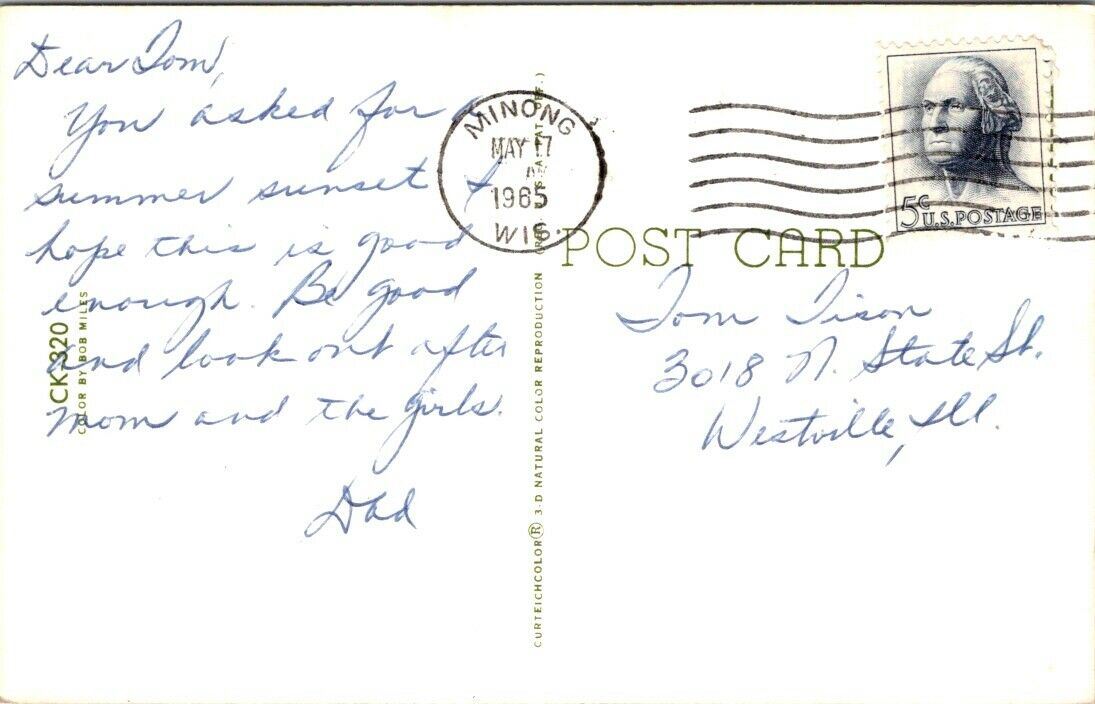 Dear Tom,
You asked for a
summer sunset &
hope this is good
enough. Be good
and look out after
Mom and the girls.
Dad
CK-320
COLOR BY BOB MILES
MINONG
MAY 17
1965
WIS.
CURTEICHCOLOR® 3-D NATURAL COLOR REPRODUCTION
5c
U.S. POSTAGE
POST CARD
Tom Tison
3018 N. State St.
Westville, Ill.